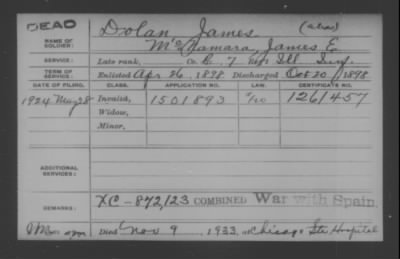 DEAD
NAME OF SOLDIER: Dolan, James (alias)
McNamara, James E.
SERVICE: Late rank, Co. C, 7 Reg't Ill. Inf.
TERM OF SERVICE: Enlisted Apr 26, 1898 Discharged Oct 20, 1898
DATE OF FILING. CLASS. APPLICATION NO. LAW. CERTIFICATE NO.
1924 May 28 Invalid, 1501893 1261457
Widow,
Minor,
ADDITIONAL SERVICES:
REMARKS: XC-872,123 COMBINED War with Spain
Died Nov 9, 1933, at Chicago Ste Hospital